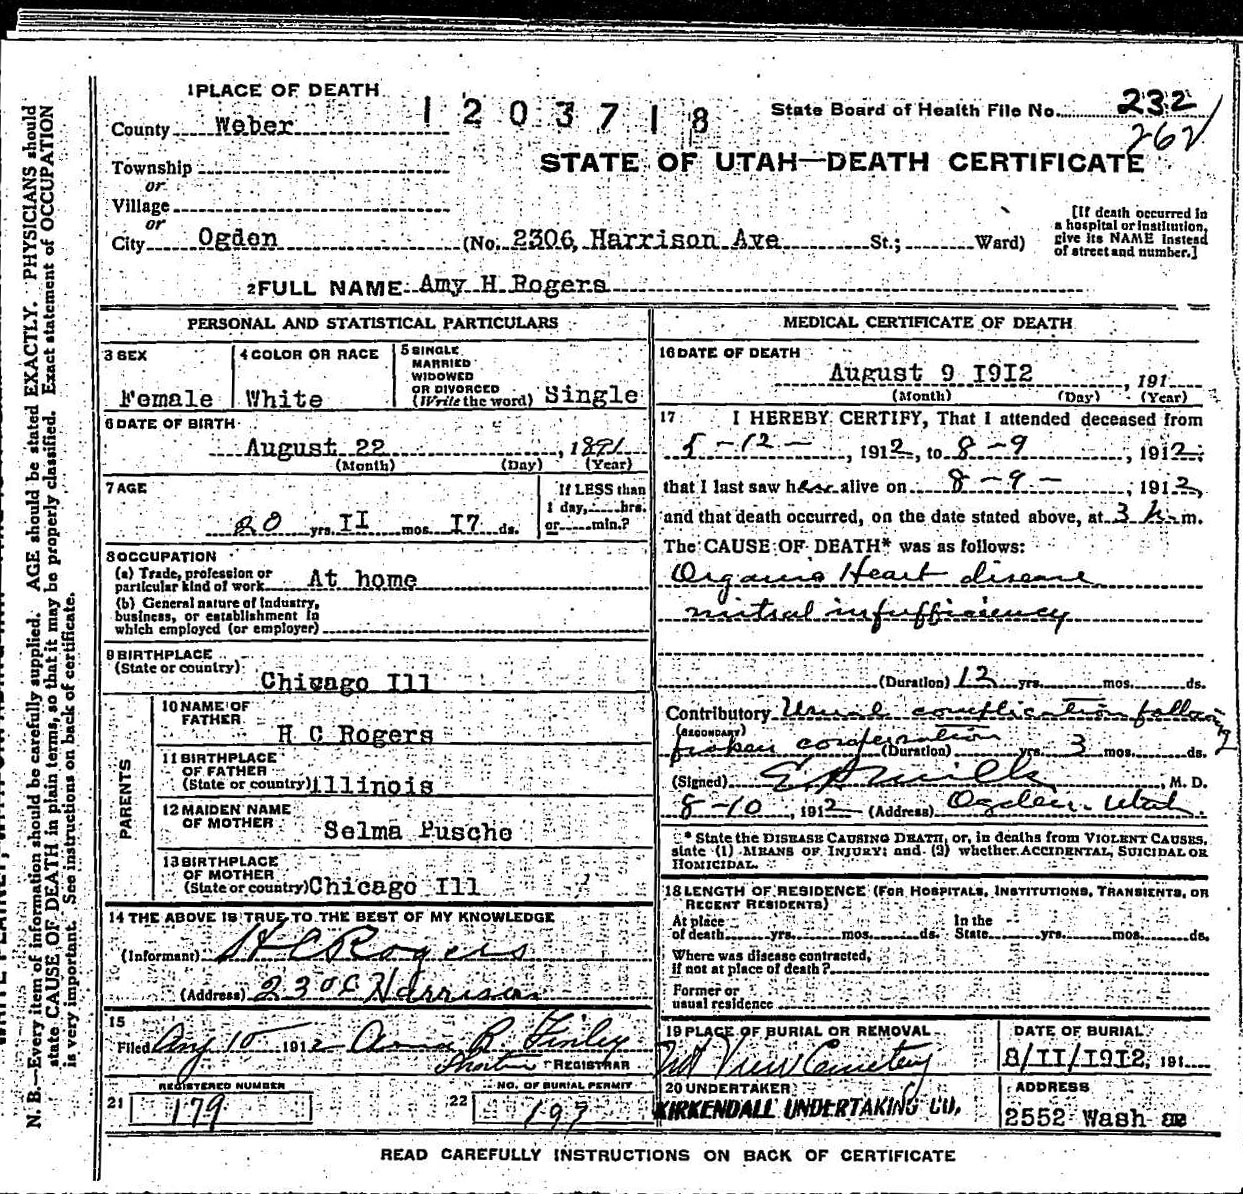 1 PLACE OF DEATH
1203718
State Board of Health File No. 232
262
County Weber
STATE OF UTAH—DEATH CERTIFICATE
Township
or
Village
or
City Ogden (No. 2306 Harrison Ave St.; Ward)
[If death occurred in
a hospital or institution,
give its NAME instead
of street and number.]
2 FULL NAME Amy H Rogers
PERSONAL AND STATISTICAL PARTICULARS
3 SEX
Female
4 COLOR OR RACE
White
5 SINGLE
MARRIED
WIDOWED
OR DIVORCED
(Write the word) Single
6 DATE OF BIRTH
August 22, 1891
(Month) (Day) (Year)
7 AGE
20 yrs. II mos. I7 ds.
If LESS than
1 day, hrs.
or min.?
8 OCCUPATION
(a) Trade, profession or
particular kind of work At home
(b) General nature of Industry,
business, or establishment in
which employed (or employer)
9 BIRTHPLACE
(State or country)
Chicago Ill
PARENTS
10 NAME OF
FATHER
H C Rogers
11 BIRTHPLACE
OF FATHER
(State or country) illinois
12 MAIDEN NAME
OF MOTHER
Selma Pusche
13 BIRTHPLACE
OF MOTHER
(State or country) Chicago Ill
14 THE ABOVE IS TRUE TO THE BEST OF MY KNOWLEDGE
(Informant) H C Rogers
(Address) 2306 Harrison
15
Filed Aug 10 1912 Anna B. Finley
REGISTRAR
REGISTERED NUMBER
21 179
NO. OF BURIAL PERMIT
22 197
MEDICAL CERTIFICATE OF DEATH
16 DATE OF DEATH
August 9 I9I2, 191
(Month) (Day) (Year)
17 I HEREBY CERTIFY, That I attended deceased from
5-12-, 1912, to 8-9, 1912,
that I last saw her alive on 8-9-, 1912,
and that death occurred, on the date stated above, at 3 m.
The CAUSE OF DEATH* was as follows:
Organic Heart disease
mitral insufficiency
(Duration) 12 yrs. mos. ds.
Contributory Usual complication following
(SECONDARY)
broken compensation (Duration) yrs. 3 mos. ds.
(Signed) E. R. Mills, M. D.
8-10, 1912 (Address) Ogden Utah
* State the DISEASE CAUSING DEATH, or, in deaths from VIOLENT CAUSES,
state (1) MEANS OF INJURY; and (2) whether ACCIDENTAL, SUICIDAL OR
HOMICIDAL.
18 LENGTH OF RESIDENCE (FOR HOSPITALS, INSTITUTIONS, TRANSIENTS, OR
RECENT RESIDENTS)
At place
of death yrs. mos. ds.
In the
State yrs. mos. ds.
Where was disease contracted,
If not at place of death?
Former or
usual residence
19 PLACE OF BURIAL OR REMOVAL
Mt View Cemetery
DATE OF BURIAL
8/II/I9I2, 191
20 UNDERTAKER
KIRKENDALL UNDERTAKING CO.
ADDRESS
2552 Wash
READ CAREFULLY INSTRUCTIONS ON BACK OF CERTIFICATE
N. B.—Every item of information should be carefully supplied. AGE should be stated EXACTLY. PHYSICIANS should
state CAUSE OF DEATH in plain terms, so that it may be properly classified. Exact statement of OCCUPATION
is very important. See instructions on back of certificate.